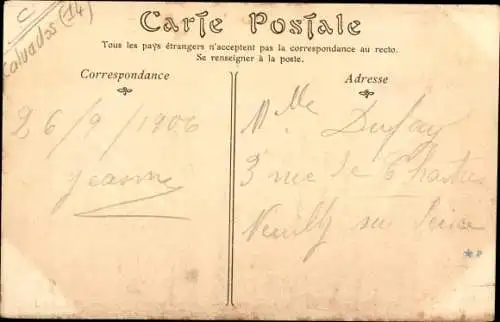 C
Calvados (14)
Carte Postale
Tous les pays étrangers n'acceptent pas la correspondance au recto.
Se renseigner à la poste.
Correspondance
Adresse
26/9/1906
Jeanne
Mlle Dufay
3 rue de Chartres
Neuilly sur Seine